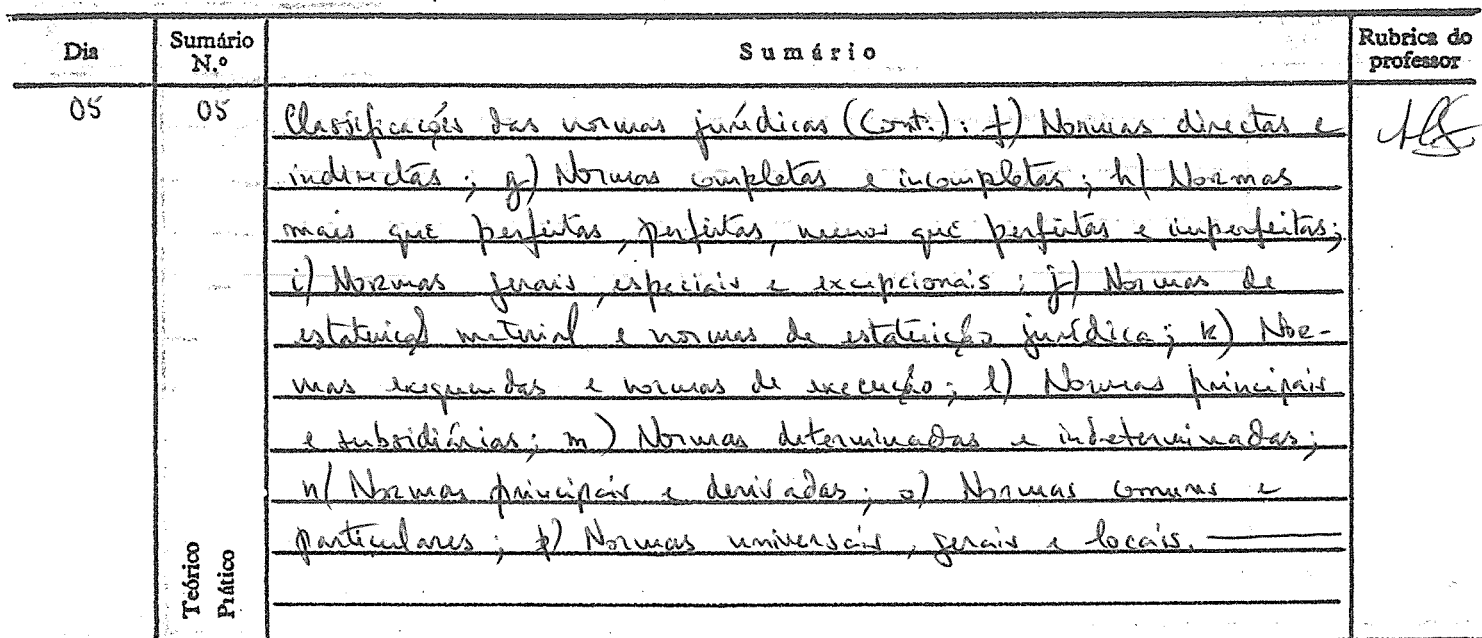 Dia
Sumário N.º
Sumário
Rubrica do professor
05
05
Classificações das normas jurídicas (Cont.): f) Normas directas e
indirectas; g) Normas completas e incompletas; h) Normas
mais que perfeitas, perfeitas, menos que perfeitas e imperfeitas;
i) Normas gerais, especiais e excepcionais; j) Normas de
estatuição material e normas de estatuição jurídica; k) Nor-
mas exequendas e normas de execução; l) Normas principais
e subsidiárias; m) Normas determinadas e indeterminadas;
n) Normas principais e derivadas; o) Normas comuns e
particulares; p) Normas universais, gerais e locais.
Teórico
Prático